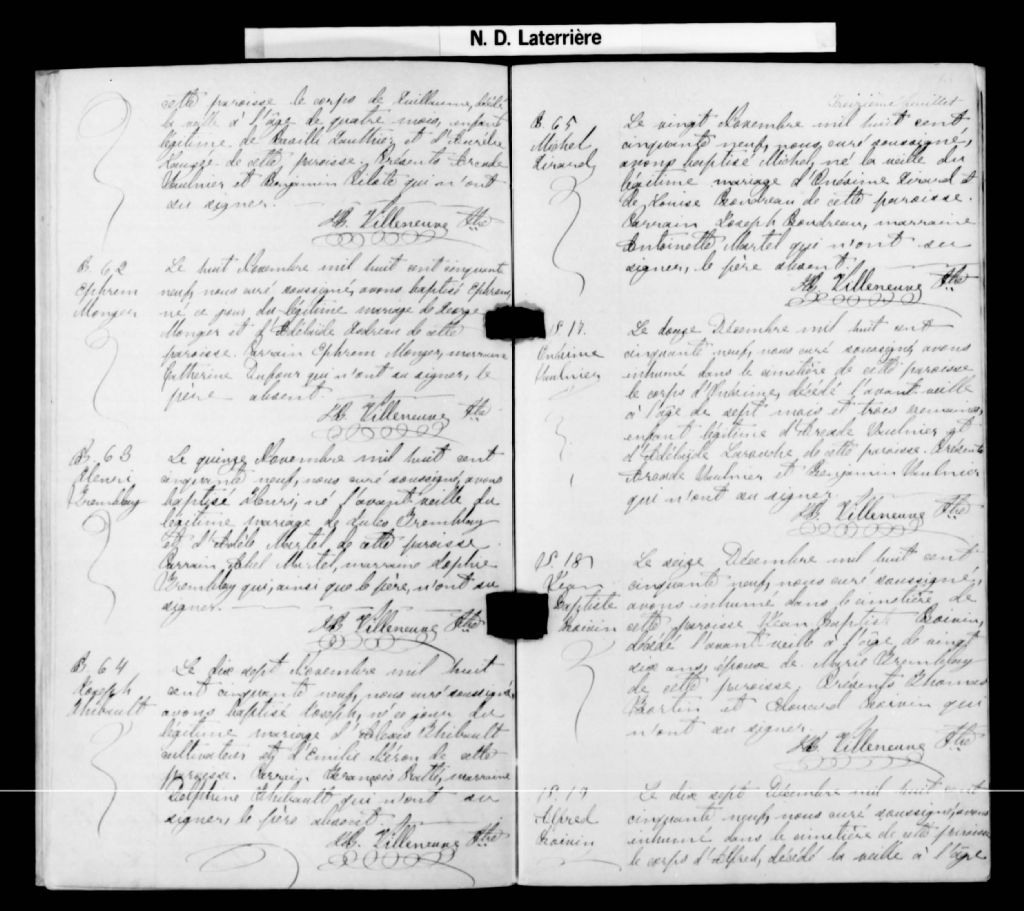 N. D. Laterrière
cette paroisse le corps de Guillaume, décédé
la veille à l'âge de quatre mois, enfant
légitime de Basile Gauthier et d'Aurélie
de cette paroisse. Présents Arcade
Vaulnier et Benjamin Pilote qui n'ont
su signer.
Villeneuve Ptre
B. 62
Ephrem
Monger
Le huit Novembre mil huit cent cinquante
neuf, nous curé soussigné, avons baptisé Ephrem,
né ce jour du légitime mariage de George
Monger et d'Adélaïde de cette
paroisse. Parrain Ephrem Monger, marraine
Catherine Dufour qui n'ont su signer, le
père absent.
Villeneuve Ptre
B. 63
Henri
Tremblay
Le quinze Novembre mil huit cent
cinquante neuf, nous curé soussigné, avons
baptisé Henri, né l'avant veille du
légitime mariage de Jules Tremblay
et d'Adèle Martel de cette paroisse.
Parrain Abel Martel, marraine Sophie
Tremblay qui, ainsi que le père, n'ont su
signer.
Villeneuve Ptre
B. 64
Joseph
Thibault
Le dix sept Novembre mil huit
cent cinquante neuf, nous curé soussigné
avons baptisé Joseph, né ce jour du
légitime mariage d'Alexis Thibault
cultivateur et d'Emilie de cette
paroisse. Parrain François marraine
Delphine Thibault qui n'ont su
signer, le père absent.
Villeneuve Ptre
Treizième feuillet
B. 65
Michel
Girard
Le vingt Novembre mil huit cent
cinquante neuf, nous, curé soussigné,
avons baptisé Michel, né la veille du
légitime mariage d'Onésime Girard et
de Louise Boudreau de cette paroisse.
Parrain Joseph Boudreau, marraine
Antoinette Martel qui n'ont su
signer, le père absent.
Villeneuve Ptre
S. 17.
Onésime
Vaulnier
Le douze Décembre mil huit cent
cinquante neuf, nous curé soussigné, avons
inhumé dans le cimetière de cette paroisse
le corps d'Onésime, décédé l'avant veille
à l'âge de sept mois et trois semaines,
enfant légitime d'Arcade Vaulnier et
d'Adélaïde Larouche de cette paroisse. Présents
Arcade Vaulnier et Benjamin Vaulnier
qui n'ont su signer.
Villeneuve Ptre
S. 18
Jean
Baptiste
Boivin
Le seize Décembre mil huit cent
cinquante neuf, nous curé soussigné,
avons inhumé dans le cimetière de
cette paroisse Jean Baptiste Boivin,
décédé l'avant veille à l'âge de vingt
six ans, époux de Marie Tremblay
de cette paroisse, Présents Thomas
Fortin et Edouard Boivin qui
n'ont su signer.
Villeneuve Ptre
S. 19
Alfred
Boivin
Le dix sept Décembre mil huit cent
cinquante neuf, nous curé soussigné, avons
inhumé dans le cimetière de cette paroisse
le corps d'Alfred, décédé la veille à l'âge